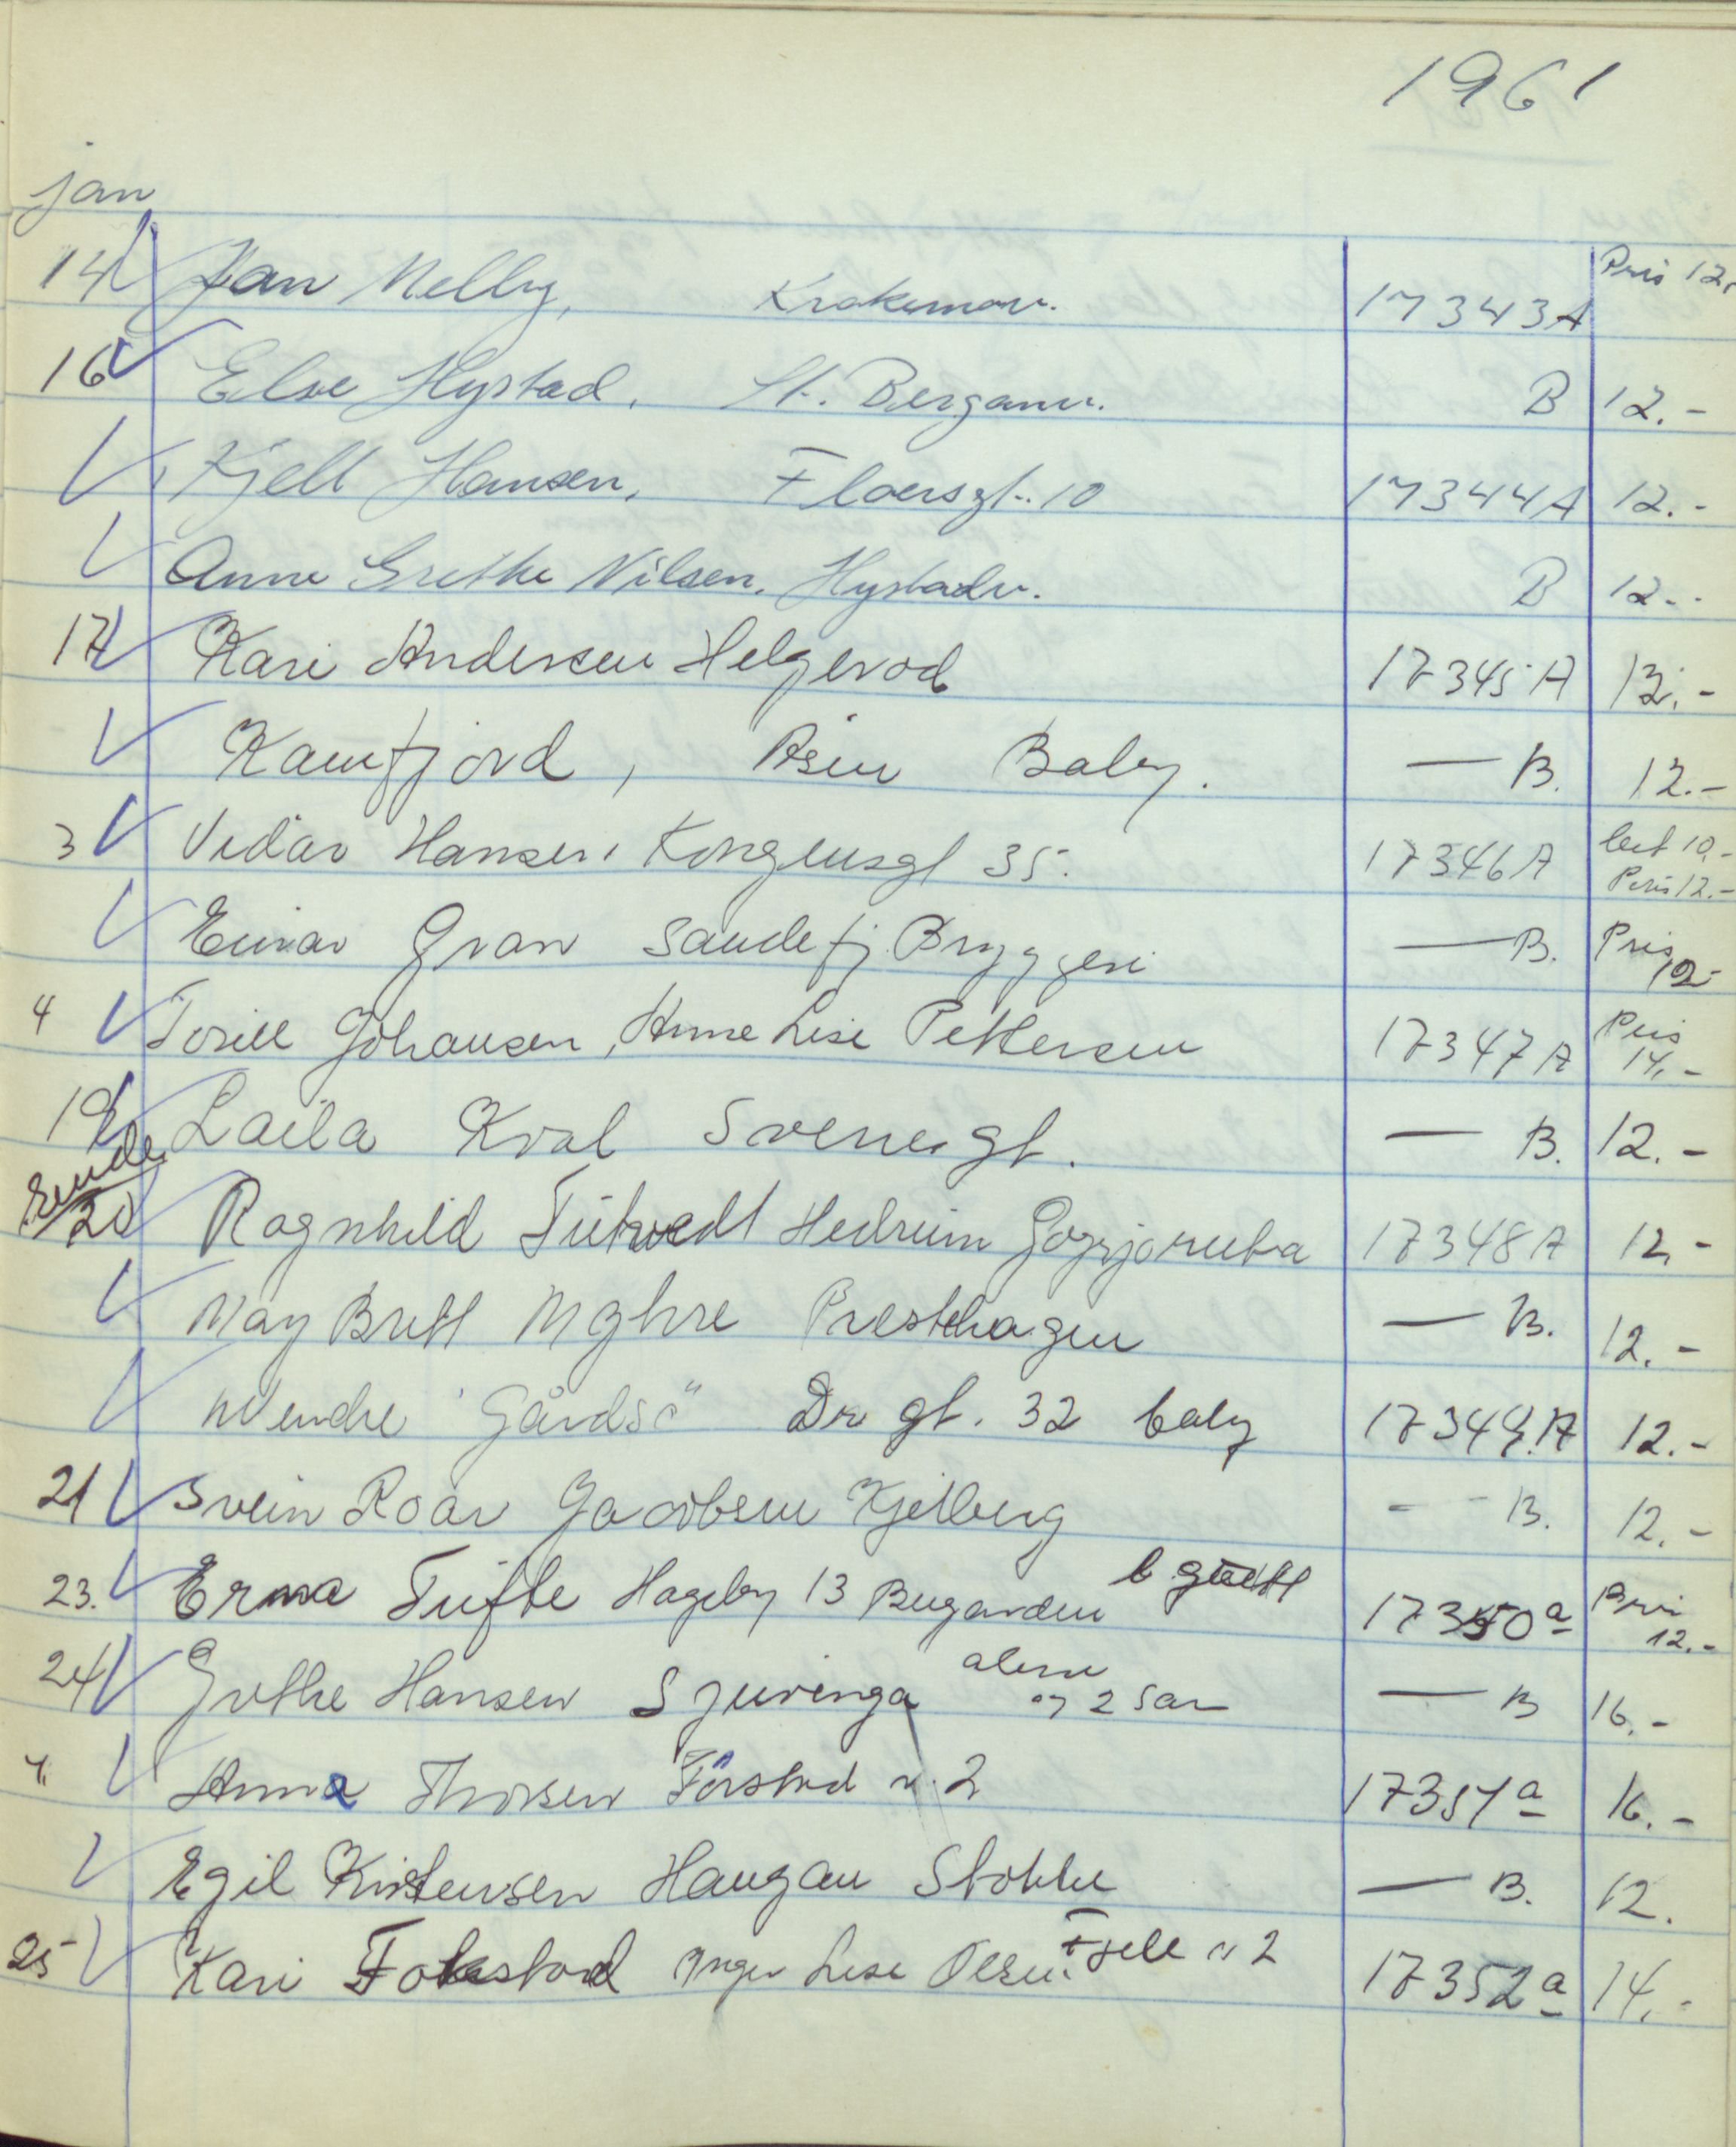 1961
jan
14 Jan Melby, Krokemov. 17343A Pris 12,
16 Else Hystad, St. Berganv. B 12.-
Kjell Hansen, Floersgt. 10 17344A 12.-
Anne Grethe Nilsen. Hystadv. B 12.-
17 Kari Andersen Helgerod 17345A 12.-
Kamfjord, Åsen Baby. — B. 12.-
3 Vidar Hansen, Kongensgt 35. 17346A bet 10,-
Pris 12.-
Einar Gran Sandefj. Bryggeri — B. Pris
12-
4 Torill Johansen, Anne Lise Pettersen 17347A Pris
14,-
19 Laila Kval Svenesgt. — B. 12.-
20 Ragnhild Hedrum 17348A 12,-
May Britt Myhre Presthagen — B. 12.-
Wenche Gårdsö Dr gt. 32 baby 17349.A 12.-
21 Svein Roar Jacobsen Kjelberg - - B. 12.-
23. Erna Tufte Hageby 13 Bugarden 17350a Pris
12.-
24 Grethe Hansen alene
og 2 sam — B 16.-
Anna Thorsen v. 2 17351a 16.-
Egil Kristensen Haugan Stokke — B. 12.
25 Kari Fokestad Inger Lise Olsen. Fjell v 2 17352a 14.-